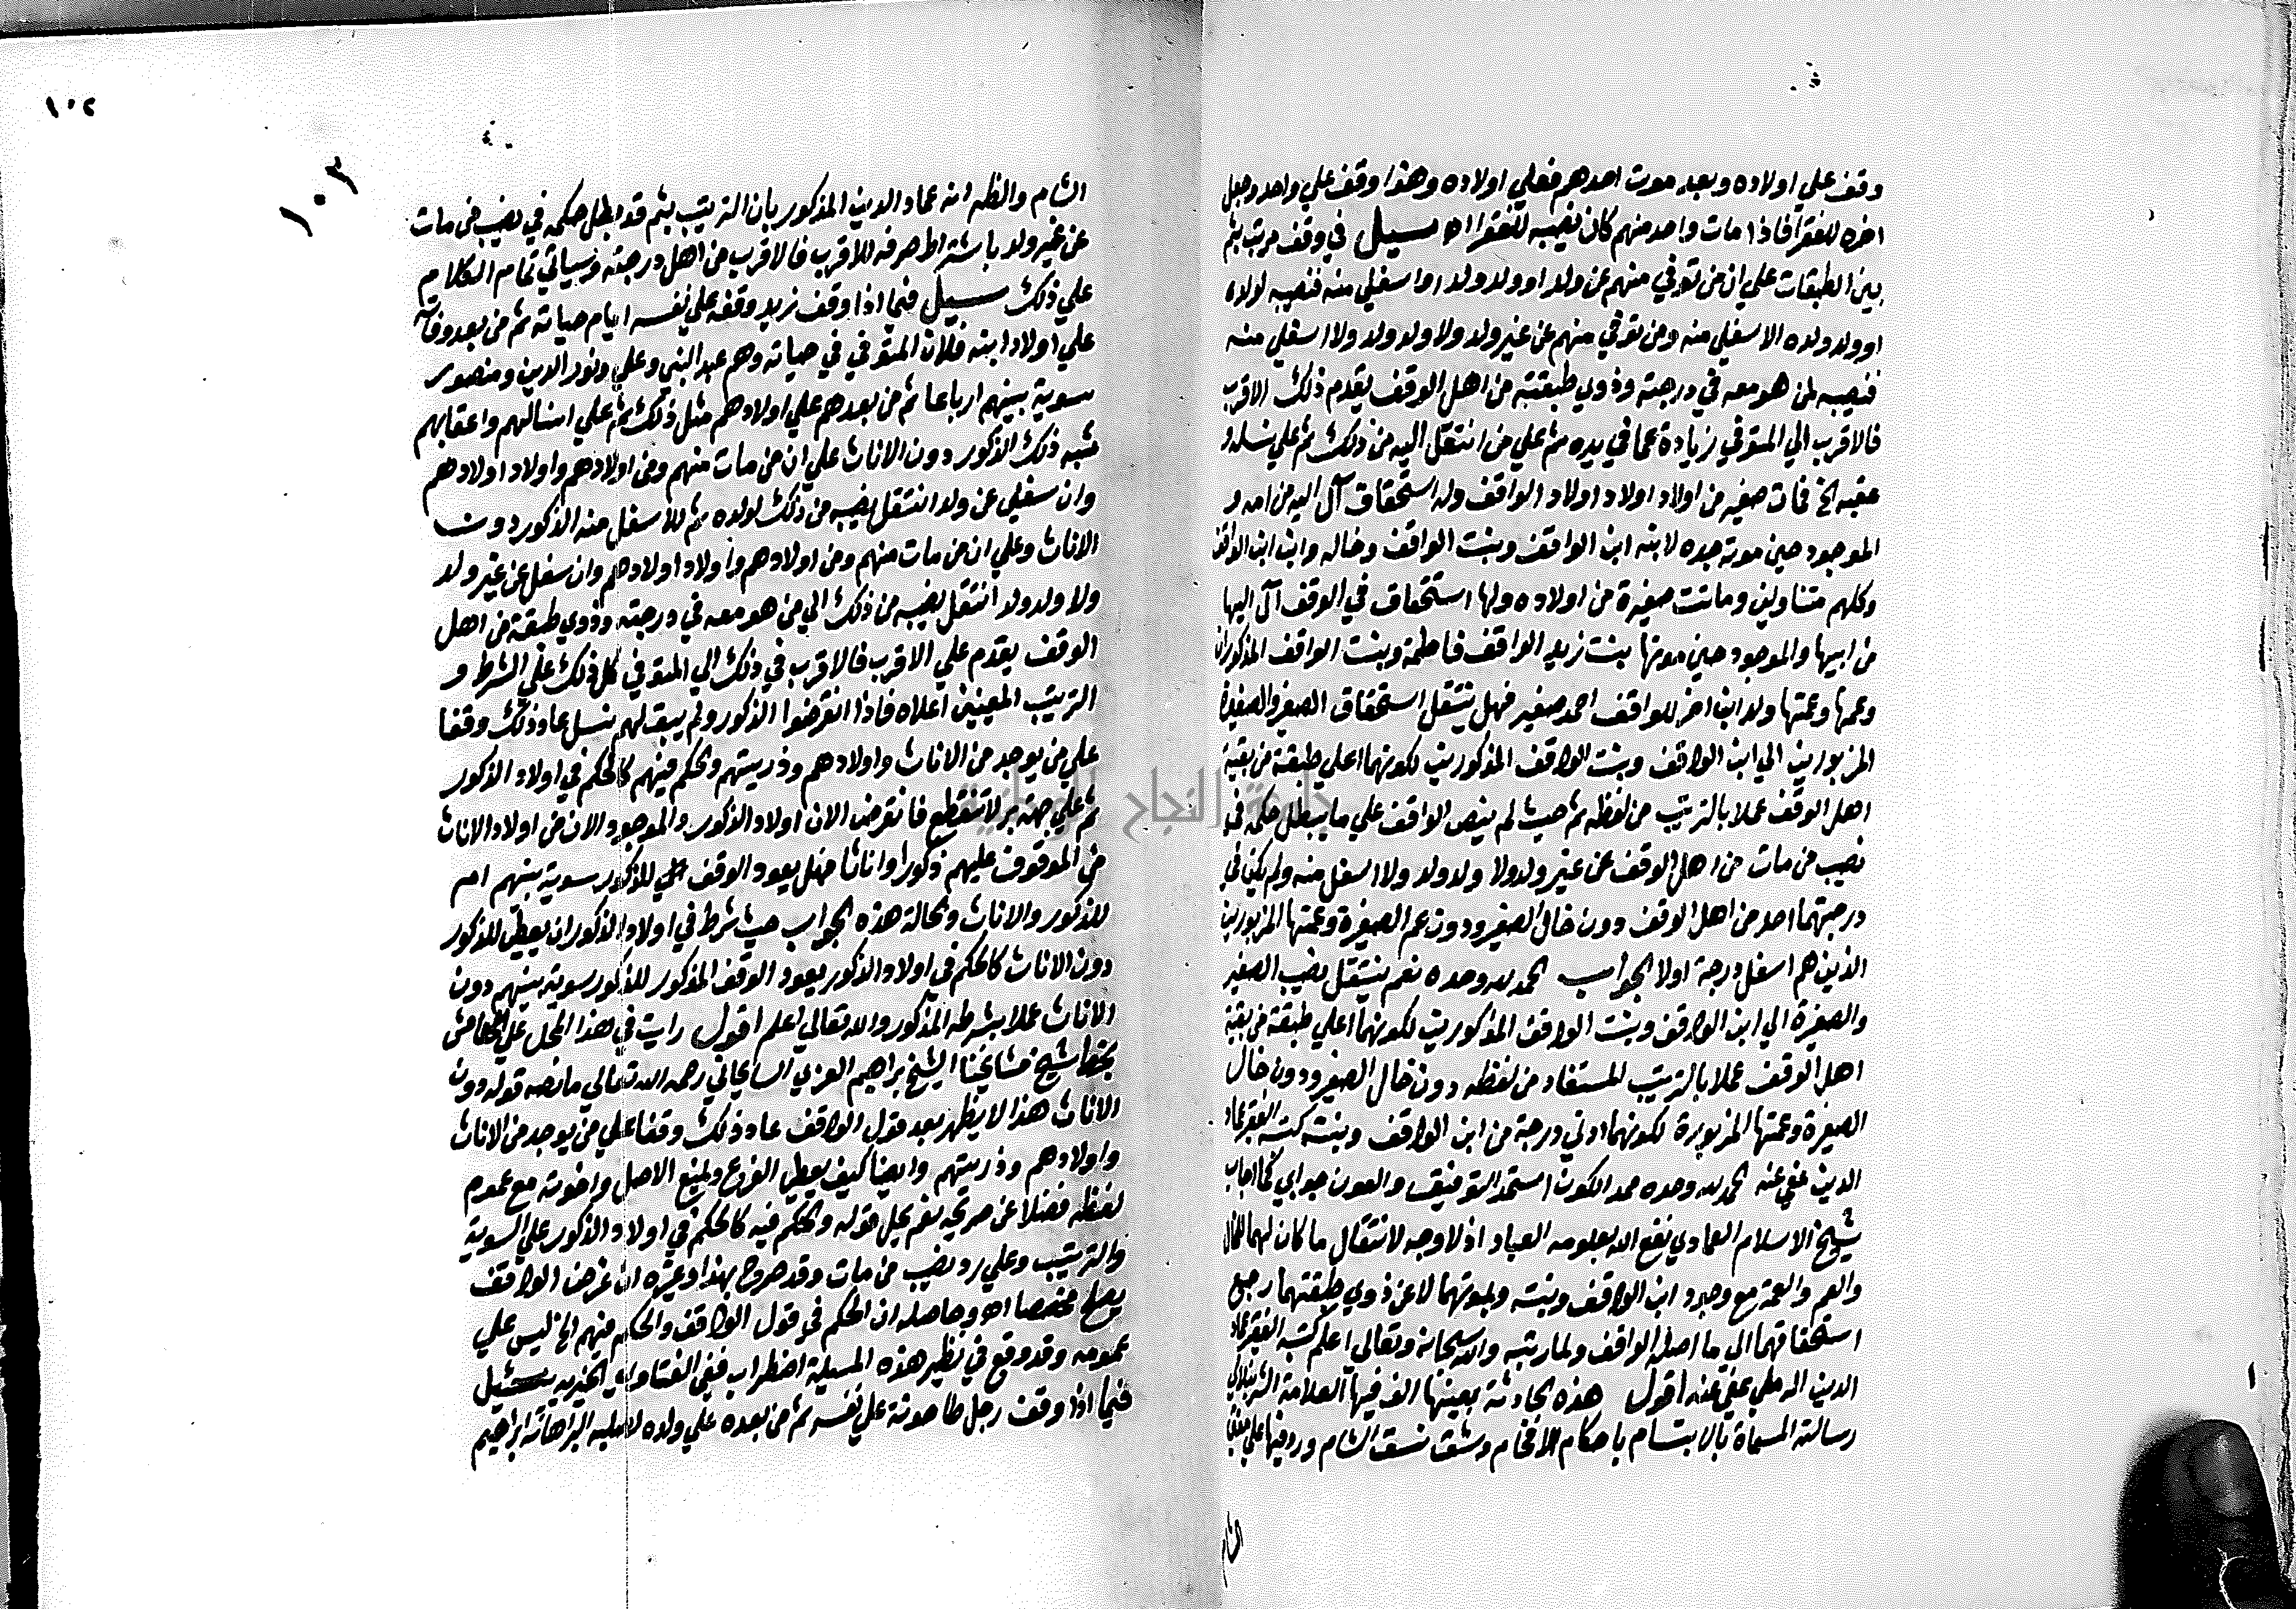 وقف علي اولاده وبعد موت احدهم فعلي اولاده وهذا وقف علي واحد وجعل
اخره للفقرا فاذا مات واحد منهم كان نصيبه للفقرا اه سيل في وقف مرتب بثم
بين الطبقات علي ان من توفي منهم عن ولد او ولد ولد او اسفل منه فنصيبه لولده
او ولد ولده الاسفل منه ومن توفي منهم عن غير ولد ولا ولد ولد ولا اسفل منه
فنصيبه لمن هو معه في درجته وذوي طبقته من اهل الوقف يقدم ذلك الاقرب
فالاقرب الي المتوفي زيادة عما في يده ثم علي من انتقل اليه من ذلك ثم علي نسله و
عقبه الخ فمات صغير من اولاد اولاد اولاد الواقف وله استحقاق آل اليه من امه و
الموجود حين موته جده لابنه ابن الواقف وبنت الواقف وخاله وابن ابن الواقف
وكلهم متناولين وماتت صغيرة من اولاده ولها استحقاق في الوقف آل اليها
من ابيها والموجود حين موتها بنت زيد الواقف فاطمة وبنت الواقف المذكوران
وعمها وعمتها ولد ابن اخر للواقف احمد صغير فهل ينتقل استحقاق الصغير والصغيرة
المزبورين الي ابن الواقف وبنت الواقف المذكورين لكونهما اعلي طبقة من بقية
اهل الوقف عملا بالترتيب من لفظه ثم حيث لم ينص الواقف علي ما يبطل حكمه في
نصيب من مات من اهل الوقف عن غير ولد ولا ولد ولد ولا اسفل منه ولم يكن في
درجتهما احد من اهل الوقف دون خال الصغير ودون عم الصغيرة وعمتها المزبورين
الذين هم اسفل درجة اولا الجواب الحمد لله وحده نعم ينتقل نصيب الصغير
والصغيرة الي ابن الواقف وبنت الواقف المذكورين لكونهما اعلي طبقة من بقية
اهل الوقف عملا بالترتيب المستفاد من لفظه دون خال الصغير ودون خال
الصغيرة وعمتها المزبورة لكونهما ادني درجة من ابن الواقف وبنته كتبه الفقير عماد
الدين عفي عنه الحمد لله وحده ممد الكون استمد التوفيق والعون جوابي كما اجاب
شيخ الاسلام العمادي نفع الله بعلومه العباد اذ لا وجه لانتقال ما كان لهما للخال
والعم والعمة مع وجود ابن الواقف وبنته وبموتهما لا عن ذوي طبقتهما رجع
استحقاقهما الي ما اصله الواقف ولما رتبه والله سبحانه وتعالي اعلم كتبه الفقير
الدين الرملي عفي عنه اقول هذه الحادثة بعينها الف فيها العلامة الشرنبلالي
رسالته المسماة بالابتسام باحكام الافحام ونشق نسق الشام ورد فيها علي مفتي
الشام
١٠٢
١٠٣
الشام والظه انه عماد الدين المذكور بان الترتيب بثم قد ابطل حكمه في نصيب من مات
عن غير ولد باشتراط صرفه للاقرب فالاقرب من اهل درجته وسياتي تمام الكلام
علي ذلك سيل فيما اذا وقف زيد وقفه علي نفسه ايام حياته ثم من بعد وفاته
علي اولاد ابنه فلان المتوفي في حياته وهم عبد النبي وعلي ونور الدين ومنصور
سوية بينهم ارباعا ثم من بعدهم علي اولادهم مثل ذلك ثم علي انسالهم واعقابهم
شبه ذلك الذكور دون الاناث علي ان من مات منهم ومن اولادهم واولاد اولادهم
وان سفل عن ولد انتقل نصيبه من ذلك لولده ثم للاسفل منه الذكور دون
الاناث وعلي ان من مات منهم ومن اولادهم واولاد اولادهم وان سفل عن غير ولد
ولا ولد ولد انتقل نصيبه من ذلك الي من هو معه في درجته وذوي طبقته من اهل
الوقف يقدم علي الاقرب فالاقرب في ذلك الي المتوفي كل ذلك علي الشرط و
الترتيب المعينين اعلاه فاذا انقرضوا الذكور ولم يبق لهم نسل عاد ذلك وقفا
علي من يوجد من الاناث واولادهم وذريتهم والحكم فيهم كالحكم في اولاد الذكور
ثم علي جهة بر لا تنقطع فانقرض الان اولاد الذكور والموجود الان من اولاد الاناث
من الموقوف عليهم ذكورا واناثا فهل يعود الوقف للذكور سوية بينهم ام
للذكور والاناث والحالة هذه الجواب حيث شرط في اولاد الذكور ان يعطي للذكور
دون الاناث كالحكم في اولاد الذكور يعود الوقف المذكور للذكور سوية بينهم دون
الاناث عملا بشرطه المذكور والله تعالي اعلم اقول رايت في هذا المحل علي الهامش
بخط شيخ مشايخنا الشيخ ابراهيم الغزي السايحاني رحمه الله تعالي ما نصه قوله دون
الاناث هذا لا يظهر بعد قول الواقف عاد ذلك وقفا علي من يوجد من الاناث
واولادهم وذريتهم وايضا كيف يعطي الفروع ويمنع الاصل واخوته مع عموم
لفظه فضلا عن صريحه نعم يحل قوله والحكم فيه كالحكم في اولاد الذكور علي السوية
والترتيب وعلي رد نصيب من مات وقد صرح بهذا وغيره ان غرض الواقف
يصلح مخصصا اه وحاصله ان الحكم في قول الواقف والحكم فيهم الخ ليس علي
عمومه وقد وقع في نظير هذه المسيلة اضطراب ففي الفتاوي الخيرية سئيل
فيما اذا وقف رجل طاحونة علي نفسه ثم من بعده علي ولده لصلبه ابراهيم
جامعة النجاح الوطنية